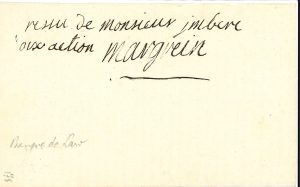 resu de monsieur jmbert
six action margrein
Banque de Law